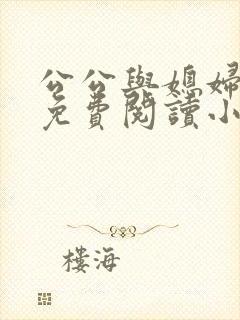 公公與媳婦
免費閱讀小
樓海